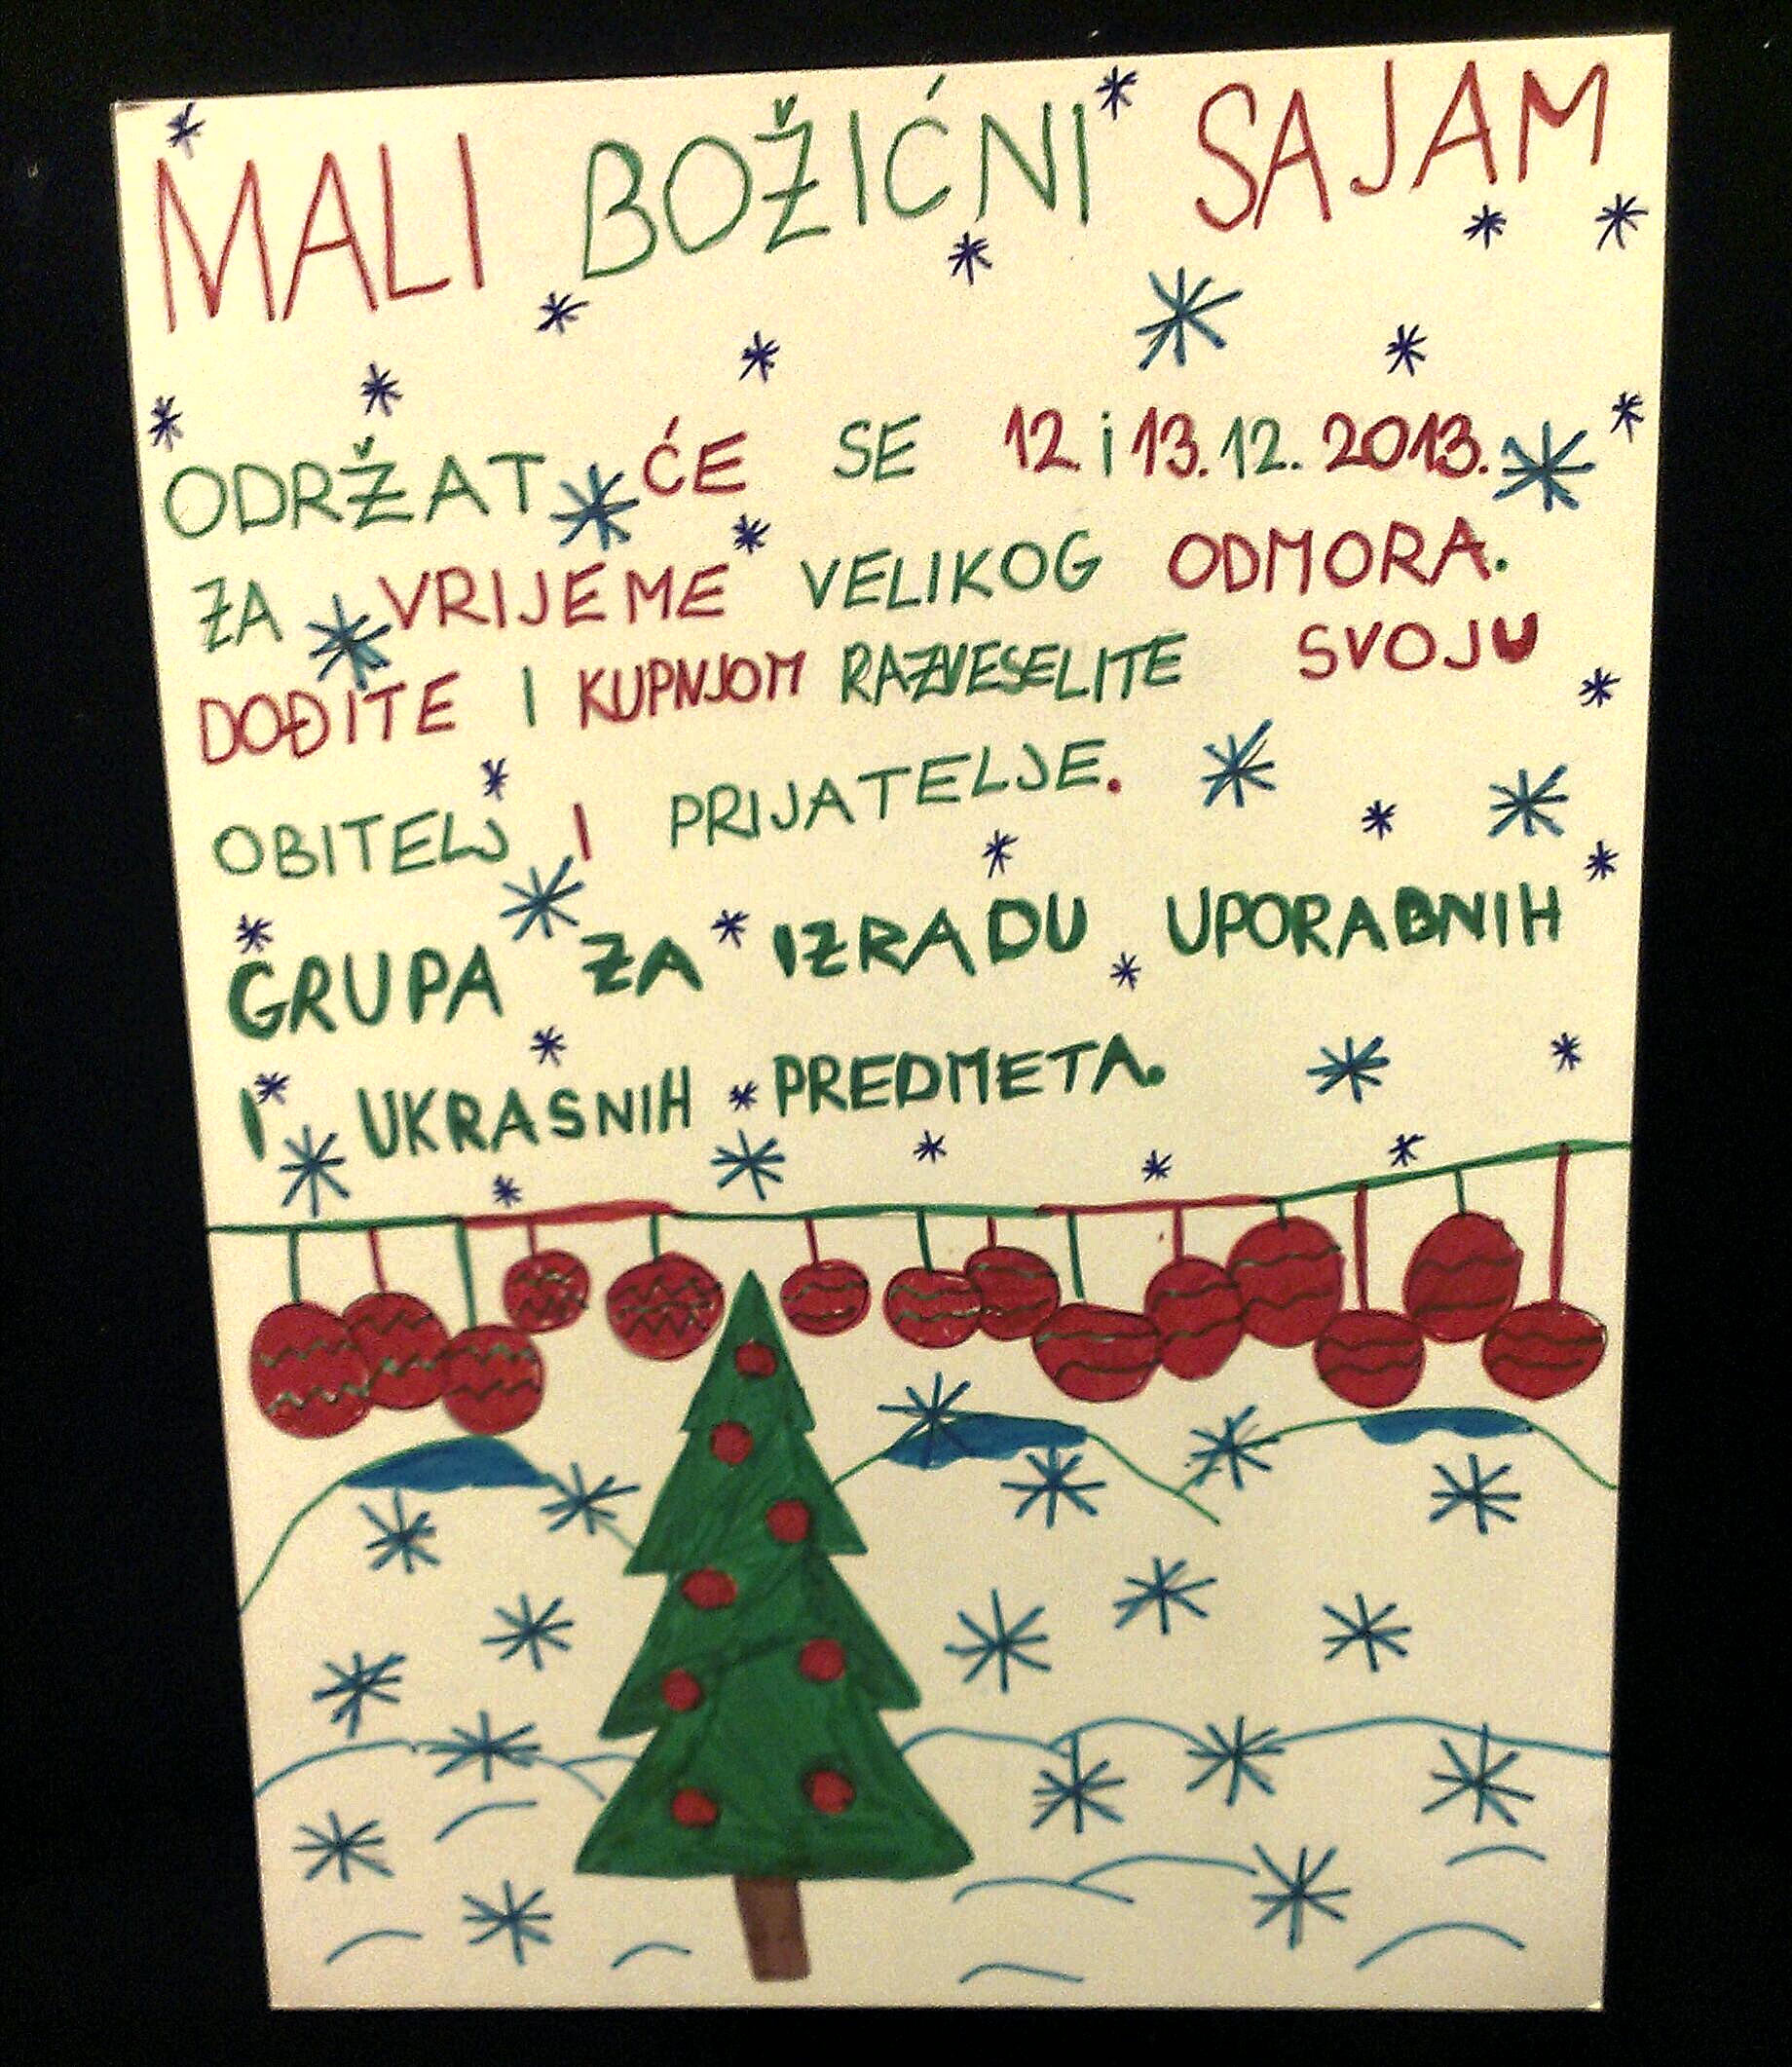 MALI BOŽIĆNI SAJAM
ODRŽAT ĆE SE 12 i 13.12. 2013.
ZA VRIJEME VELIKOG ODMORA.
DOĐITE I KUPNJOM RAZVESELITE SVOJU
OBITELJ I PRIJATELJE.
GRUPA ZA IZRADU UPORABNIH
I UKRASNIH PREDMETA.